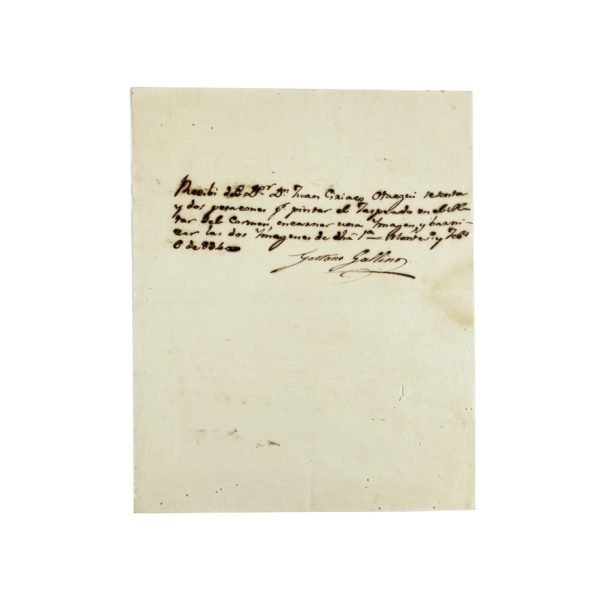 Recibi del Dr. Dn Juan Ciriaco Otaegui sesenta
y dos patacones pr pintar el Jaspeado en el Al-
tar del Carmen, encarnar una Imagen, y barni-
zar las dos Imagenes de dha Ya— Montevo y Feb.o
6 de 834
Gaetano Gallino